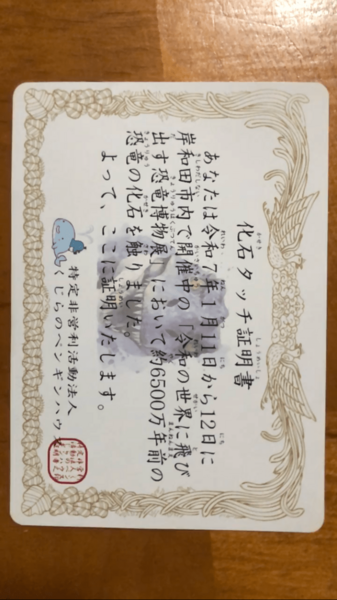 化石タッチ証明書
あなたは令和7年1月11日から12日に
岸和田市内で開催中の「令和の世界に飛び
出す恐竜博物展」において約6500万年前の
恐竜の化石を触りました。
よって、ここに証明いたします。
特定非営利活動法人
くじらのペンギンハウス